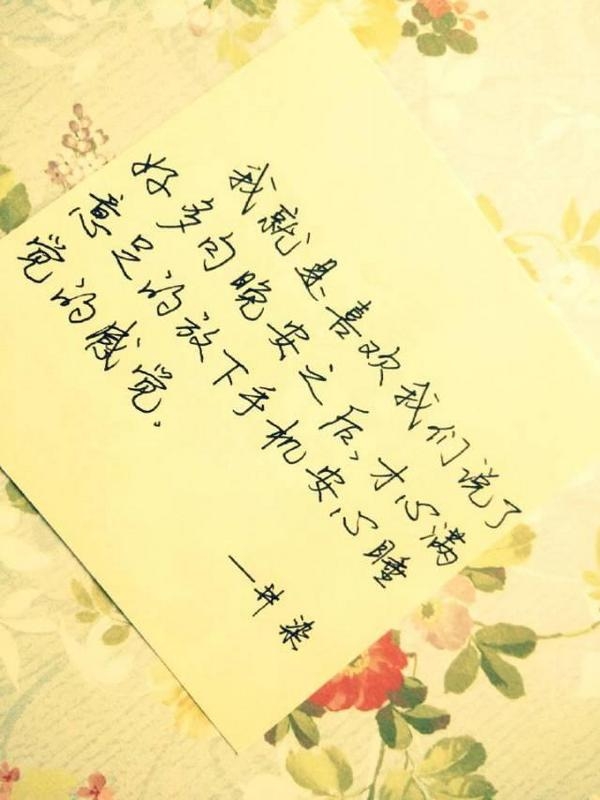 我就是喜欢我们说了
好多句晚安之后，才心满
意足的放下手机安心睡
觉的感觉。
一井染